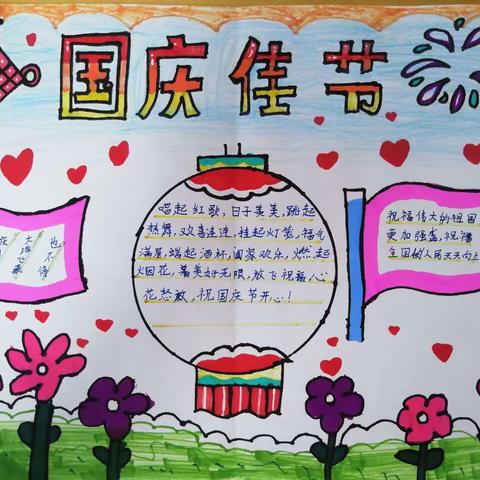 国庆佳节
唱起红歌,日子美美,跳起
热舞,欢喜连连,挂起灯笼,福气
满屋,端起酒杯,阖家欢乐,燃起
烟花,美好无限,放飞祝福,心
花怒放,祝国庆节开心!
祝福伟大的祖国
更加强盛,祝福
全国的人民天天向上
也
不
大